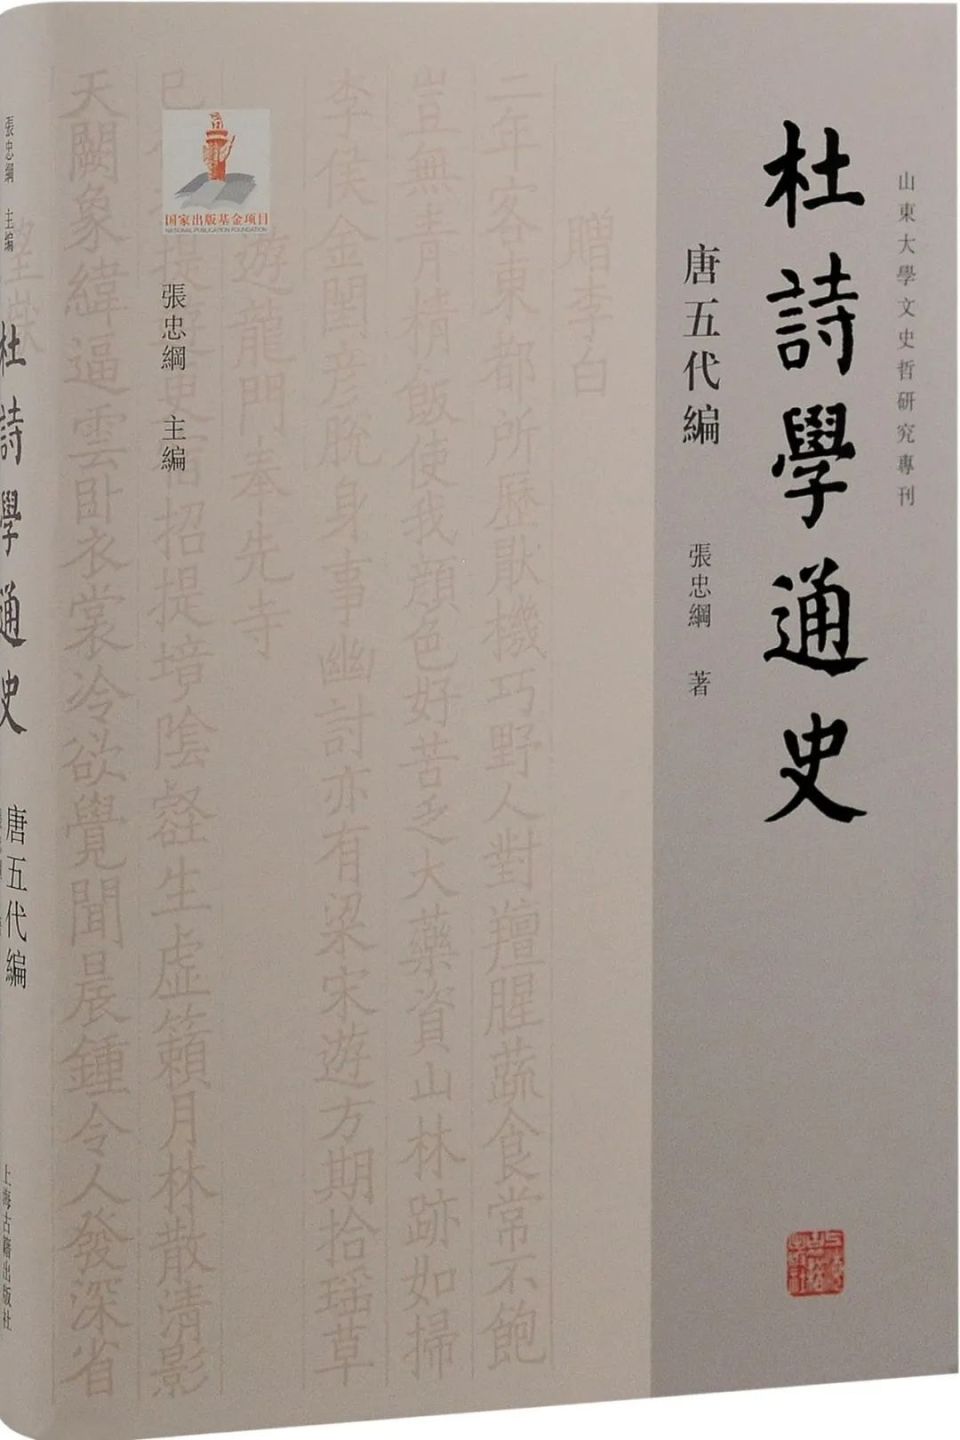 山東大學文史哲研究專刊
杜詩學通史
唐五代編
張忠綱 著
贈李白
二年客東都所歷厭機巧野人對羶腥蔬食常不飽
豈無青精飯使我顏色好苦乏大藥資山林跡如掃
李侯金閨彥脫身事幽討亦有梁宋遊方期拾瑤草
遊龍門奉先寺
招提境陰壑生虛籟月林散清影
天闕象緯逼雲臥衣裳冷欲覺聞晨鐘令人發深省
国家出版基金项目
NATIONAL PUBLICATION FOUNDATION
張忠綱 主編
張忠綱 主編
杜詩學通史
唐五代編
上海古籍出版社